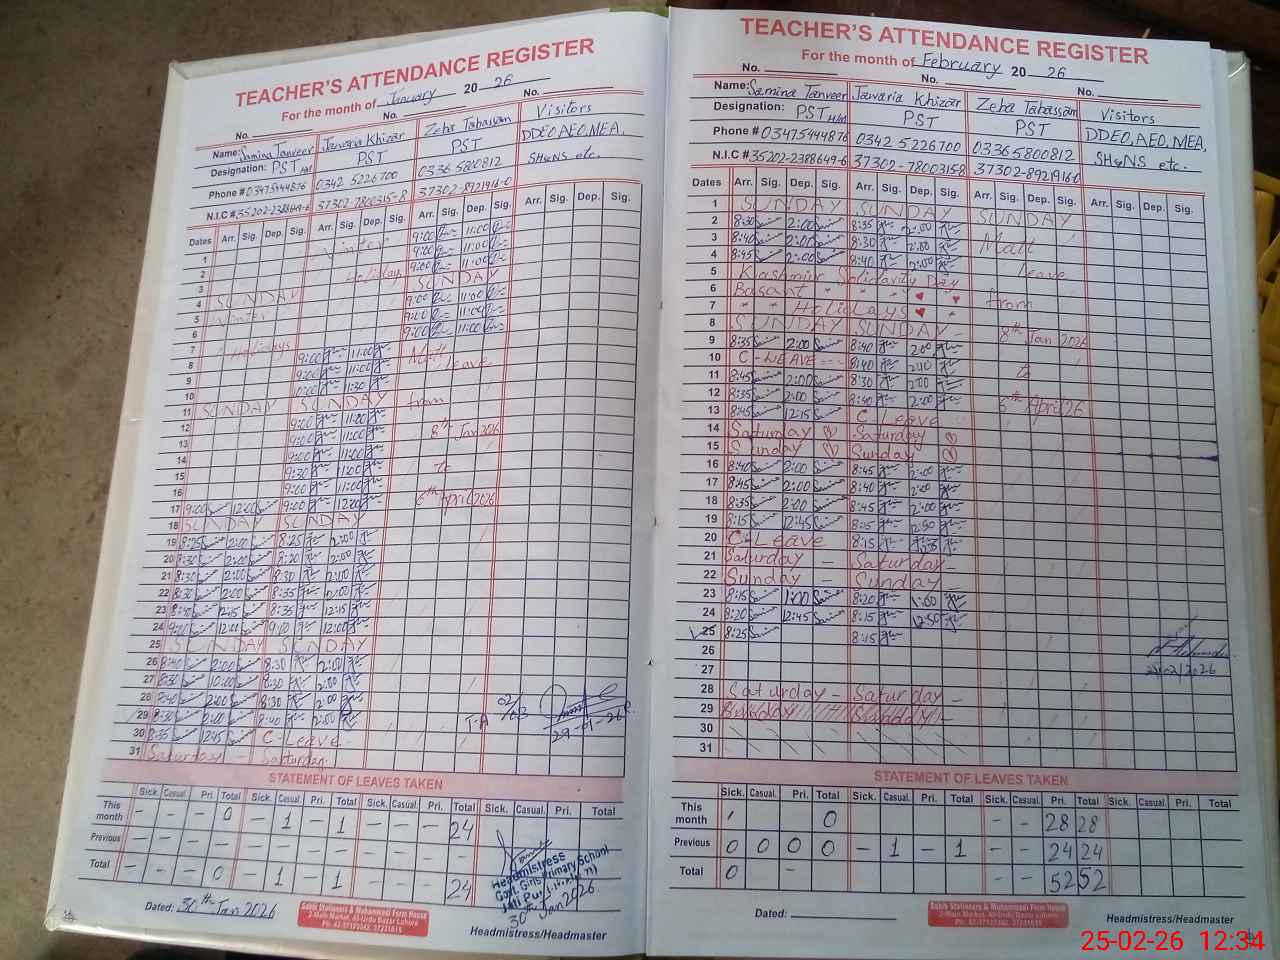 TEACHER'S ATTENDANCE REGISTER
For the month of January 20 26
No. No. No.
Name: Samina Tanveer Jawaria Khizar Zeba Tabassam Visitors
Designation: PST HM PST PST DDEO, AEO, MEA,
Phone # 03475444876 0342 5226700 0336 5800812 SH&NS etc.
N.I.C # 35202-2388649-6 37302-7800315-8 37302-8921916-0
Dates Arr. Sig. Dep. Sig. Arr. Sig. Dep. Sig. Arr. Sig. Dep. Sig. Arr. Sig. Dep. Sig.
1 Winter 9:00 11:00
2 9:00 11:00
3 Holidays 9:00 11:00
4 SUNDAY SUNDAY
5 Winter 9:00 11:00
6 9:00 11:00
7 Holidays 9:00 11:00
8 9:00 11:00 Matt
9 9:00 11:00 leave
10 10:00 11:30
11 SUNDAY SUNDAY from
12 9:00 11:00
13 9:00 11:00 8th Jan 2026
14 9:00 11:00
15 9:30 11:00 to
16 9:00 11:00
17 9:00 12:00 9:00 12:00 6th April 2026
18 SUNDAY SUNDAY
19 8:25 2:00 8:25 2:00
20 8:30 2:00 8:20 2:00
21 8:30 2:00 8:30 2:00
22 8:30 2:00 8:35 2:00
23 8:40 12:15 8:35 12:15
24 9:00 12:00 9:00 12:00
25 SUNDAY SUNDAY
26 8:40 2:00 8:30 2:00
27 8:30 10:00 8:30 2:00
28 8:40 2:00 8:30 2:00
29 8:30 2:00 8:40 2:00 T-A 02/03 29-1-26
30 8:35 12:45 C-Leave-
31 Saturday - Saturday
STATEMENT OF LEAVES TAKEN
Sick. Casual. Pri. Total Sick. Casual. Pri. Total Sick. Casual. Pri. Total Sick. Casual. Pri. Total
This month - - - 0 - 1 - 1 - - - 24
Previous - - - - - - - - - - - -
Total - - - 0 - 1 - 1 - - - 24
Headmistress
Govt. Girls Primary School
30th Jan 2026
Dated: 30th Jan 2026
Sabih Stationers & Muhammadi Form House
2-Main Market, Al-Urdu Bazar Lahore
Headmistress/Headmaster
TEACHER'S ATTENDANCE REGISTER
For the month of February 20 26
No. No. No.
Name: Samina Tanveer Jawaria Khizar Zeba Tabassam Visitors
Designation: PST HM PST PST DDEO, AEO, MEA,
Phone # 03475444876 0342 5226700 0336 5800812 SH&NS etc.
N.I.C # 35202-2388649-6 37302-7800315-8 37302-8921916-0
Dates Arr. Sig. Dep. Sig. Arr. Sig. Dep. Sig. Arr. Sig. Dep. Sig. Arr. Sig. Dep. Sig.
1 SUNDAY SUNDAY SUNDAY
2 8:30 2:00 8:35 2:00
3 8:40 2:00 8:30 2:00 Matt
4 8:45 2:00 8:40 2:00 leave
5 Kashmir Solidarity Day
6 Basant " " " from
7 " " Holidays
8 SUNDAY SUNDAY - 8th Jan 2026
9 8:35 2:00 8:40 2:00
10 C-LEAVE -- 8:40 2:10 to
11 8:45 2:00 8:30 2:00
12 8:35 2:00 8:40 2:00 6th April 26
13 8:45 12:15 C Leave
14 Saturday Saturday
15 Sunday Sunday
16 8:40 2:00 8:45 2:00
17 8:45 2:00 8:40 2:00
18 8:35 2:00 8:45 2:00
19 8:15 12:45 8:15 12:50
20 C-Leave 8:15
21 Saturday - Saturday-
22 Sunday - Sunday-
23 8:15 1:00 8:20 1:00
24 8:20 12:45 8:15 12:50
25 8:25 8:15
26
27 25/02/2026
28 Saturday - Saturday
29 Sunday Sunday -
30
31
STATEMENT OF LEAVES TAKEN
Sick. Casual. Pri. Total Sick. Casual. Pri. Total Sick. Casual. Pri. Total Sick. Casual. Pri. Total
This month 0 - - 28 28
Previous 0 0 0 0 - 1 - 1 - - 24 24
Total 0 - 52 52
Dated:
Sabih Stationers & Muhammadi Form House
2-Main Market, Al-Urdu Bazar Lahore
Headmistress/Headmaster
25-02-26 12:34